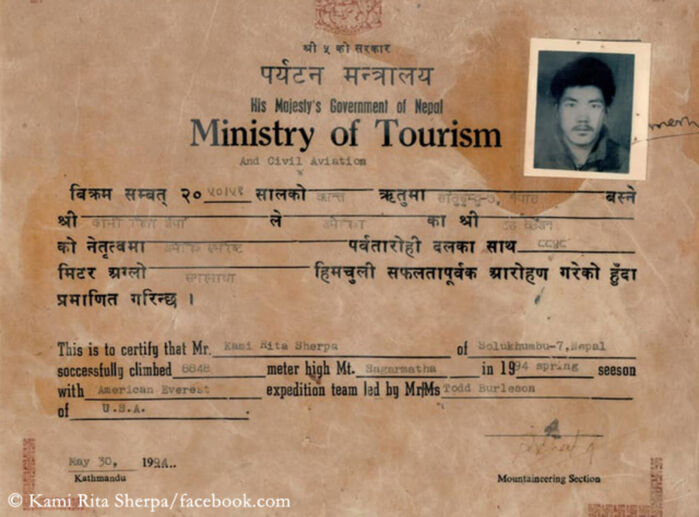 श्री ५ को सरकार
पर्यटन मन्त्रालय
His Majesty's Government of Nepal
Ministry of Tourism
And Civil Aviation
बिक्रम सम्बत् २० ५०/५१ सालको ऋतुमा सोलुखुम्बु-७, नेपाल बस्ने
श्री ले अमेरिका का श्री
को नेतृत्वमा पर्वतारोही दलका साथ ८८४८
मिटर अग्लो सगरमाथा हिमचुली सफलतापूर्वक आरोहण गरेको हुँदा
प्रमाणित गरिन्छ ।
This is to certify that Mr. Kami Rita Sherpa of Solukhumbu-7,Nepal
soccessfully climbed 8848 meter high Mt. Sagarmatha in 1994 spring seeson
with American Everest expedition team led by Mr/Ms Todd Burleson
of U.S.A.
May 30, 1994..
Kathmandu
Mountaineering Section
© Kami Rita Sherpa/facebook.com